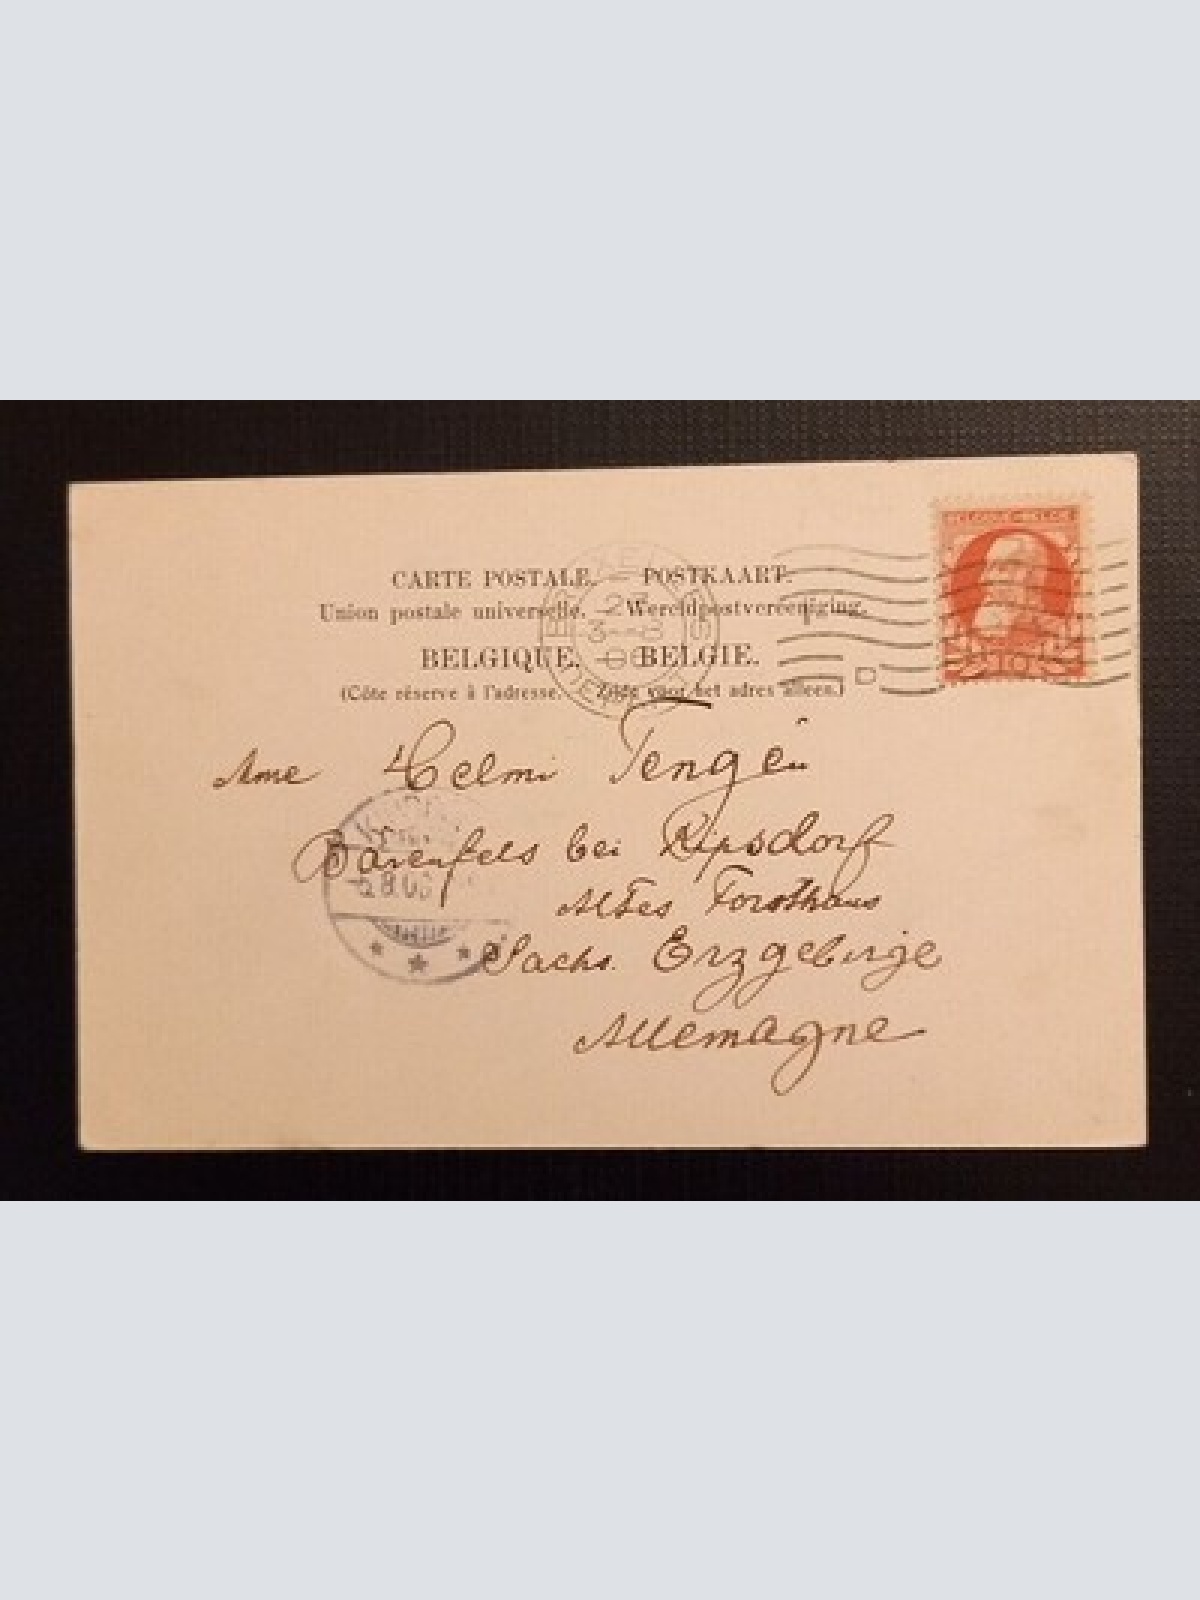 CARTE POSTALE. — POSTKAART.
Union postale universelle. — Wereldpostvereeniging.
BELGIQUE. — BELGIE.
(Côte réserve à l'adresse. Zijde voor het adres alleen.)
BELGIQUE BELGIE
10
3—8
D
Mme Helmi Tengén
Bärenfels bei Kipsdorf
8.06
Altes Forsthaus
Sächs. Erzgebirge
Allemagne